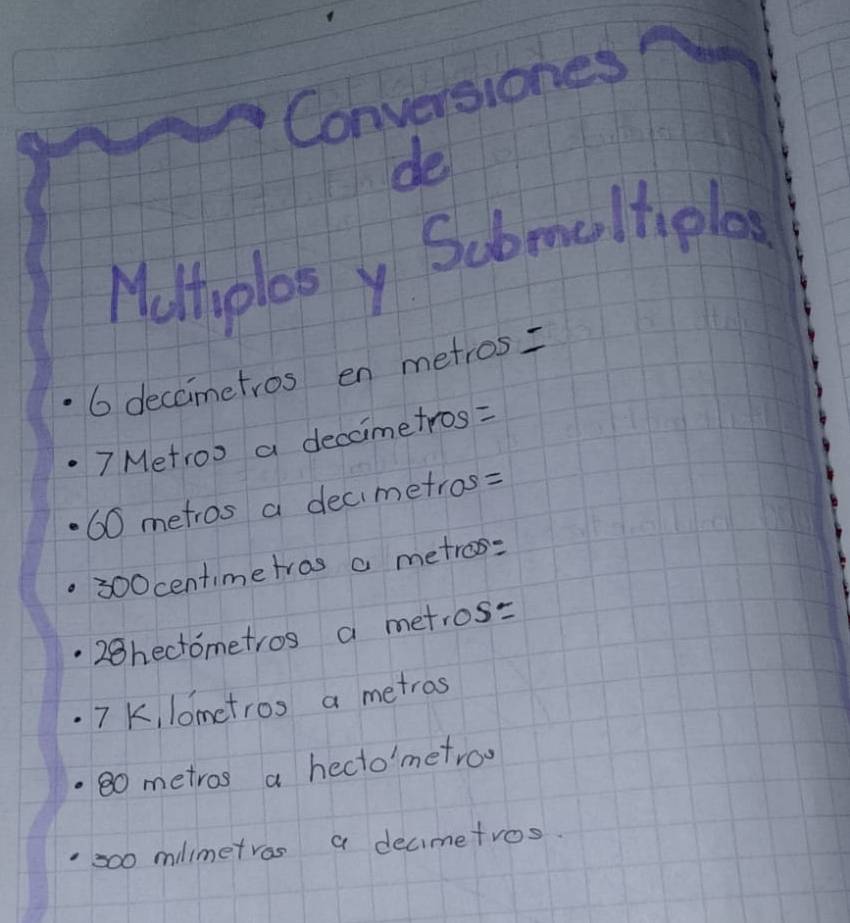 Conversiones
de
Multiplos y Submultiplos.
• 6 decámetros en metros =
• 7 Metros a decámetros =
• 60 metros a decimetros =
• 300 centimetros a metros =
• 28 hectómetros a metros =
• 7 Kilómetros a metros
• 80 metros a hectómetros
• 300 milimetros a decimetros.